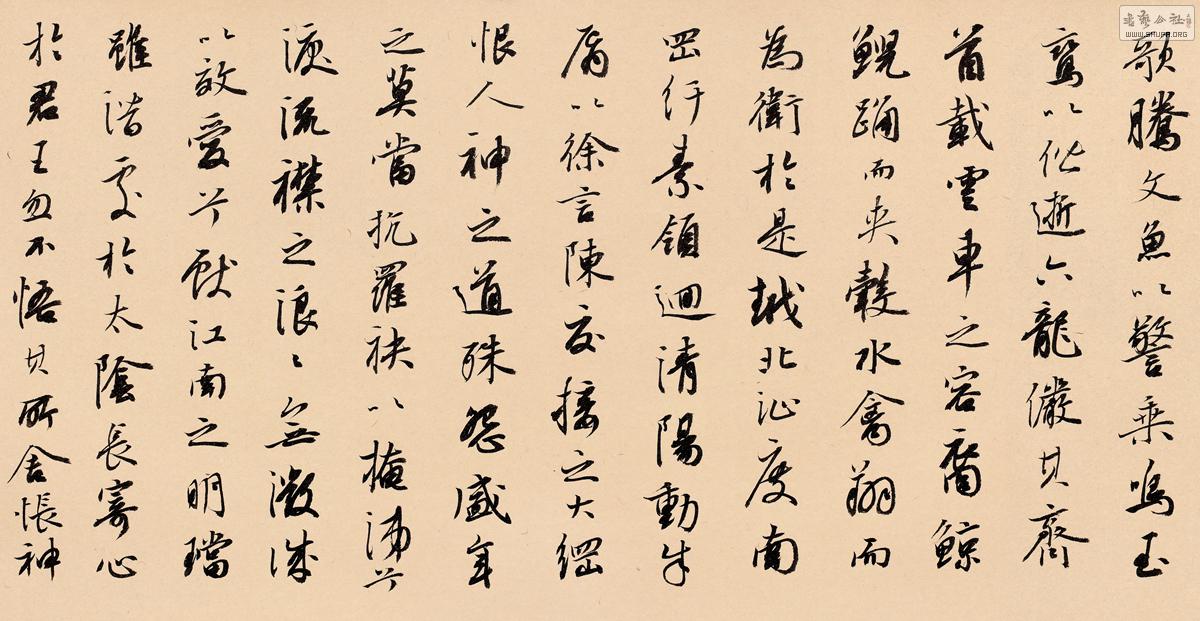 歌騰文魚以警乘鳴玉
鸞以偕逝六龍儼其齊
首載雲車之容裔鯨
鯢踊而夾轂水禽翔而
為衛於是越北沚度南
岡紆素領迴清陽動朱
脣以徐言陳交接之大綱
恨人神之道殊怨盛年
之莫當抗羅袂以掩涕兮
淚流襟之浪〻無微誠
以效愛兮獻江南之明璫
雖潛處於太陰長寄心
於君王忽不悟其所舍悵神
書藝公社
WWW.SHUFA.ORG